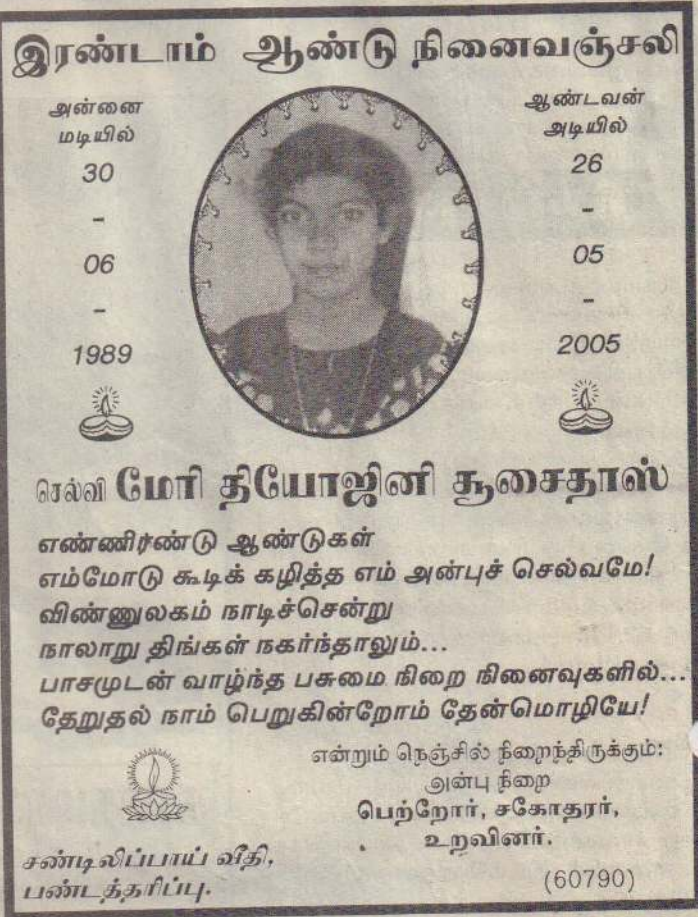 இரண்டாம் ஆண்டு நினைவஞ்சலி
அன்னை
மடியில்
30
-
06
-
1989
ஆண்டவன்
அடியில்
26
-
05
-
2005
செல்வி மேரி தியோஜினி சூசைதாஸ்
எண்ணிரண்டு ஆண்டுகள்
எம்மோடு கூடிக் கழித்த எம் அன்புச் செல்வமே!
விண்ணுலகம் நாடிச்சென்று
நாலாறு திங்கள் நகர்ந்தாலும்...
பாசமுடன் வாழ்ந்த பசுமை நிறை நினைவுகளில்...
தேறுதல் நாம் பெறுகின்றோம் தேன்மொழியே!
என்றும் நெஞ்சில் நிறைந்திருக்கும்:
அன்பு நிறை
பெற்றோர், சகோதரர்,
உறவினர்.
சண்டிலிப்பாய் வீதி,
பண்டத்தரிப்பு.
(60790)